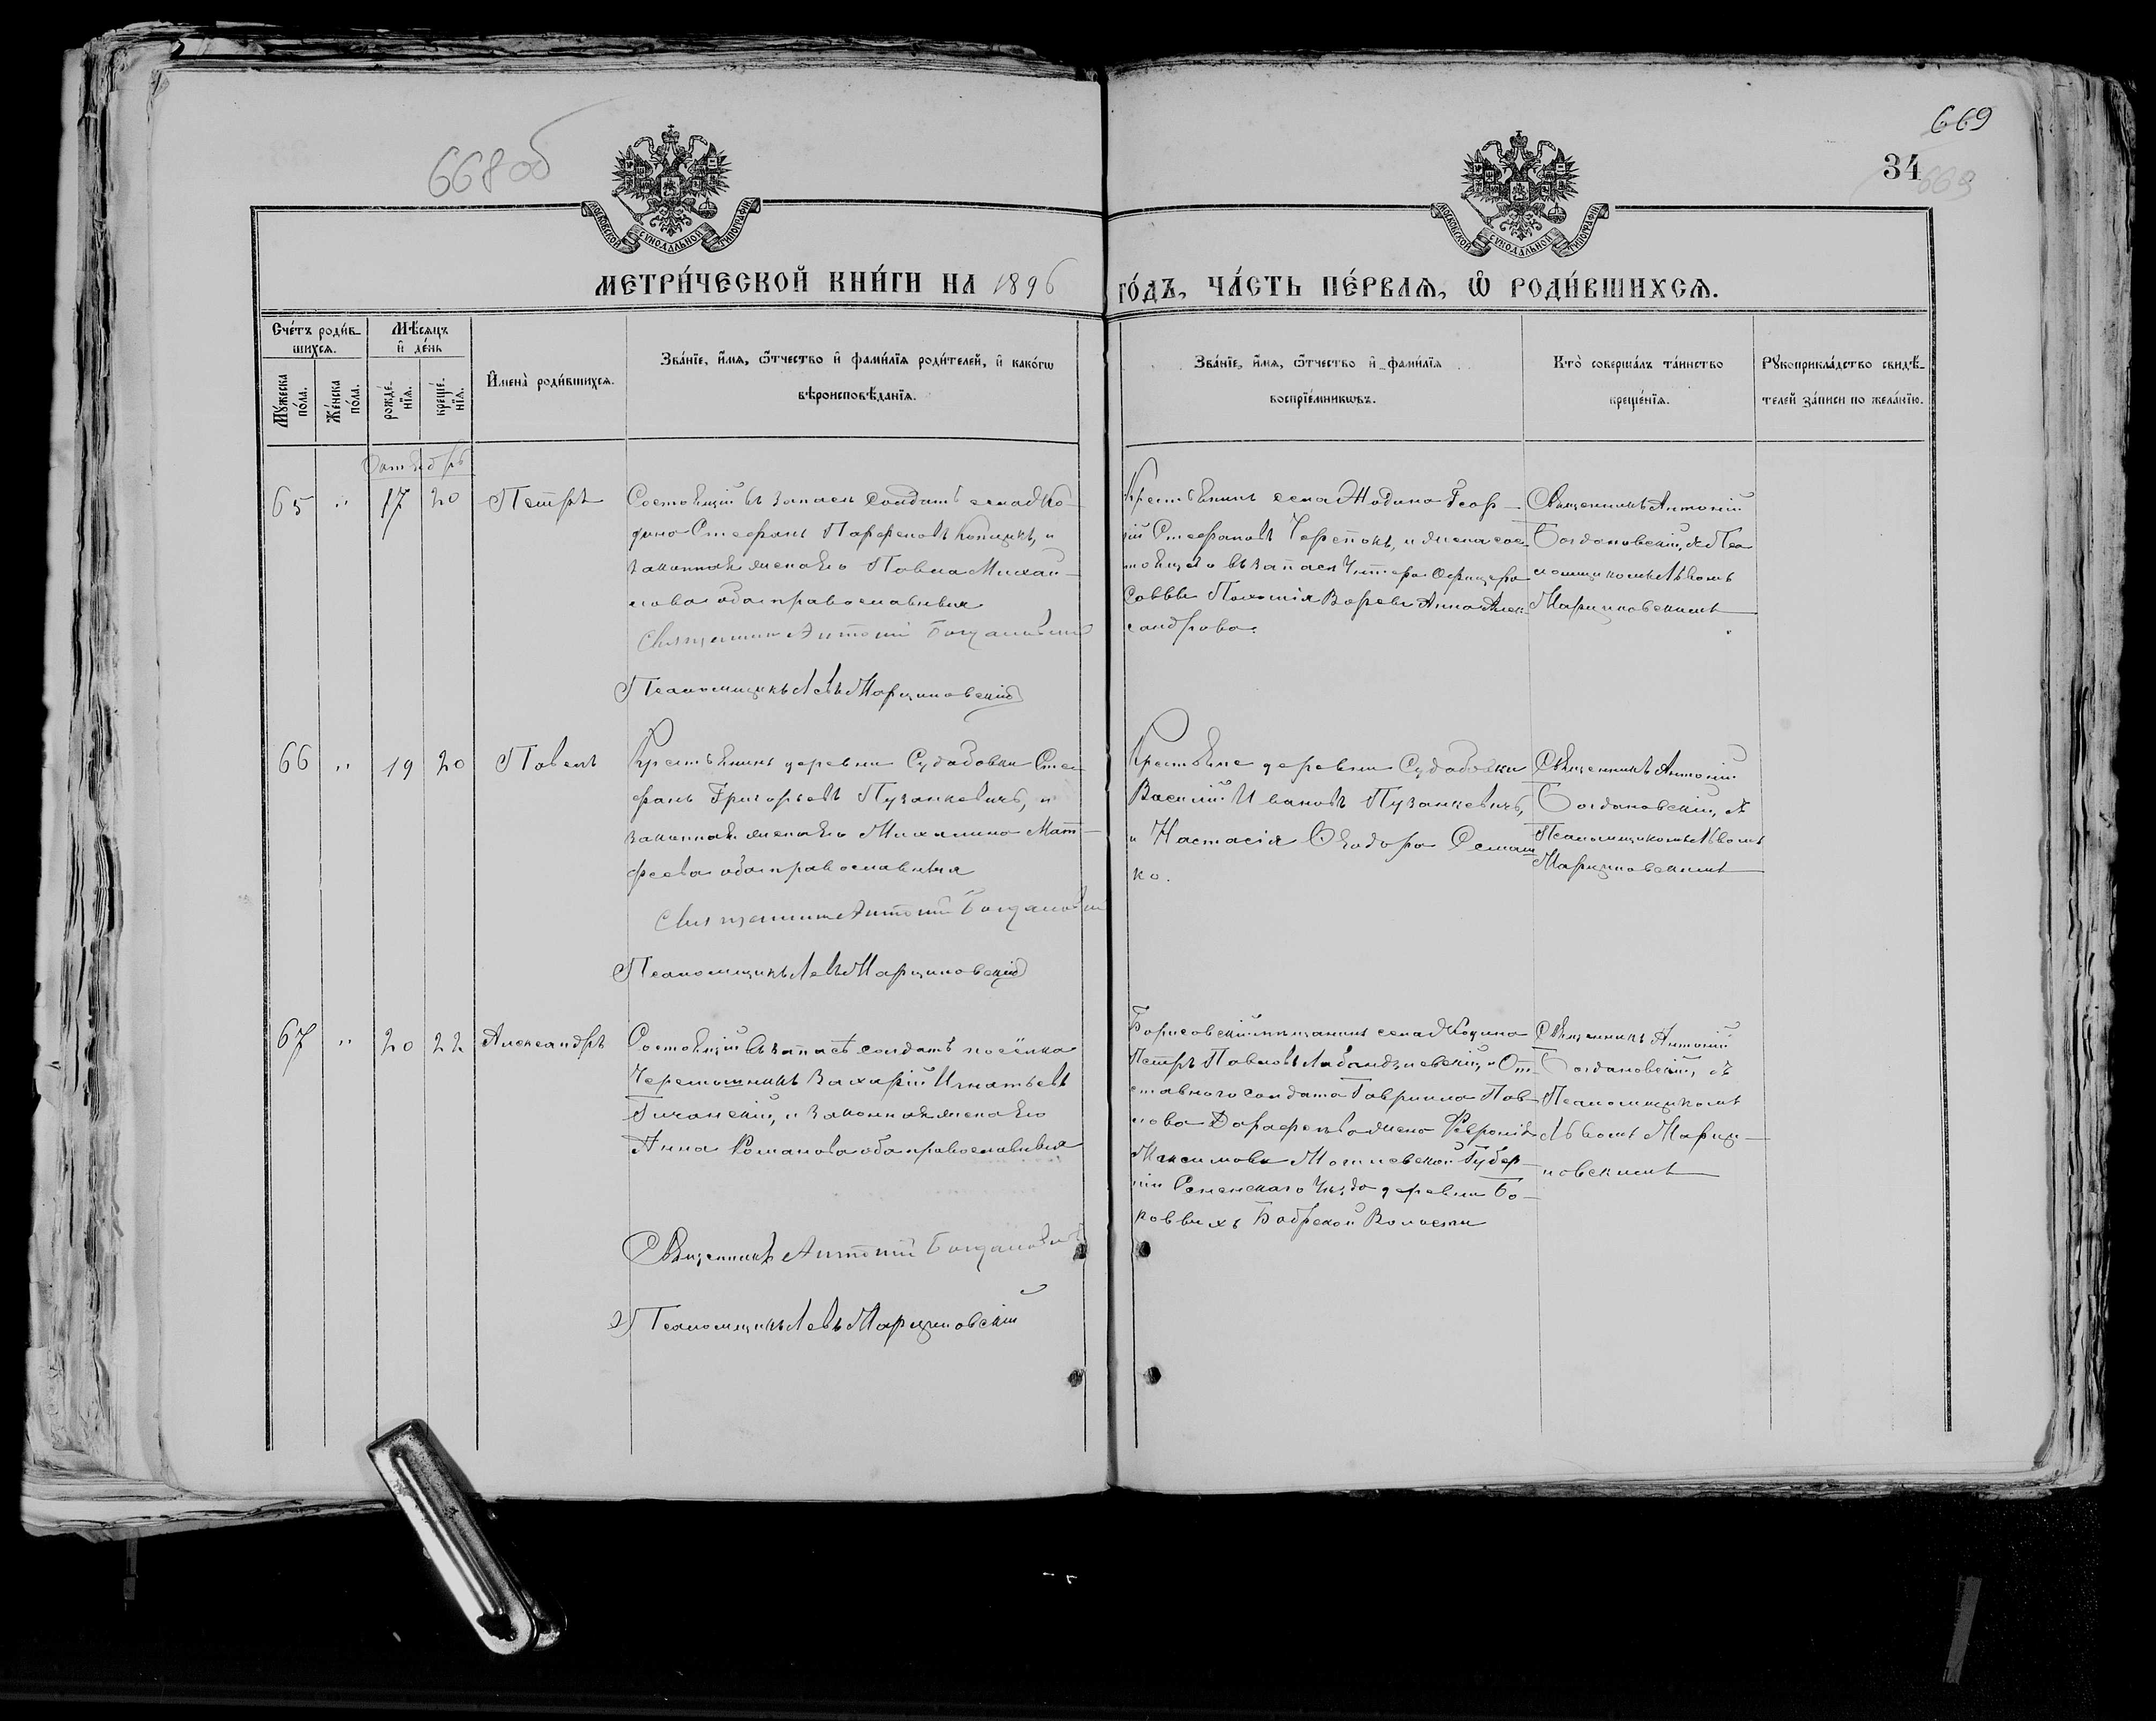 668об
669
34
669
МОСКОВСКОЙ СѴНОДАЛЬНОЙ ТИПОГРАФІИ
МОСКОВСКОЙ СѴНОДАЛЬНОЙ ТИПОГРАФІИ
МЕТРИ́ЧЕСКОЙ КНИ́ГИ НА 1896 ГО́ДЪ, ЧА́СТЬ ПЕ́РВАѦ, Ѡ҆ РОДИ́ВШИХСѦ.
Сче́тъ роди́в-
шихсѧ.
Мꙋ́жеска
по́ла.
Же́нска
по́ла.
Мѣ́сѧцъ
и҆ де́нь
рожде́-
нїѧ.
креще́-
нїѧ.
И҆мена̀ роди́вшихсѧ.
Зва́нїе, и҆́мѧ, ѻ҆́тчество и҆ фами́лїѧ роди́телей, и҆ како́гѡ
вѣроисповѣ́данїѧ.
Зва́нїе, и҆́мѧ, ѻ҆́тчество и҆ фами́лїѧ
воспрїе́мникѡвъ.
Кто̀ соверша́лъ та́инство
креще́нїѧ.
Рꙋкоприкла́дство свидѣ́-
телей за́писи по жела́нїю.
Октябрь
65 " 17 20 Петръ
Состоящій въ запасѣ солдатъ села Жо-
дино Стефанъ Парфеновъ Копицкъ, и
законная жена его Павла Михай-
лова оба православныя
Священникъ Антоній Богдановскій
Псаломщикъ Левъ Марциновскій
Крестьянинъ села Жодина Геор-
гій Стефановъ Черепокъ, и жена сос-
тоящаго въ запасѣ Унтеръ Офицера
Саввы Анна Алек-
сандрова.
Священникъ Антоній
Богдановскій, съ Пса-
ломщикомъ Львомъ
Марциновскимъ
66 " 19 20 Павелъ
Крестьянинъ деревни Судобовки Сте-
фанъ Григорьевъ Пузанкевичъ, и
законная жена его Михалина Мат-
феева оба православныя
Священникъ Антоній Богдановскій
Псаломщикъ Левъ Марциновскій
Крестьяне деревни Судобовки
Василій Ивановъ Пузанкевичъ,
и Настасія Ѳеодора Осташ
ко.
Священникъ Антоній
Богдановскій, съ
Псаломщикомъ Львомъ
Марциновскимъ
67 " 20 22 Александръ
Состоящій въ запасѣ солдатъ посёлка
Черемошникъ Захарій Игнатьевъ
и законная жена его
Анна Романова оба православныя
Священникъ Антоній Богдановскій
Псаломщикъ Левъ Марциновскій
Борисовскій мѣщанинъ села Жодино
Петръ Павловъ и От-
ставного солдата Гавріила Пав-
лова жена Февронія
Максимова Могилевской Губер-
ніи Сененскаго Уѣзда деревни Бо-
Бобрской Волости
Священникъ Антоній
Богдановскій, съ
Псаломщикомъ
Львомъ Марци-
новскимъ